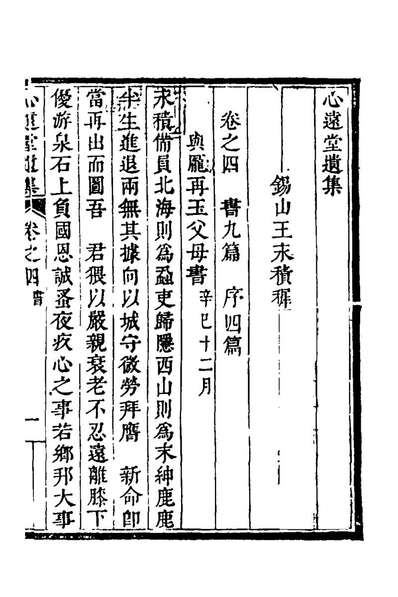 心遠堂遺集
錫山王永積穉
卷之四 書九篇 序四篇
與龐再玉父母書 辛巳十二月
永積備員北海則為盈吏歸隱西山則為末紳鹿鹿
半生進退兩無其據向以城守微勞拜膺 新命卽
當再出而圖吾 君猥以嚴親衰老不忍遠離膝下
優游泉石上負國恩誠蚤夜疚心之事若鄉邦大事
心遠堂遺集 卷之四 書 一